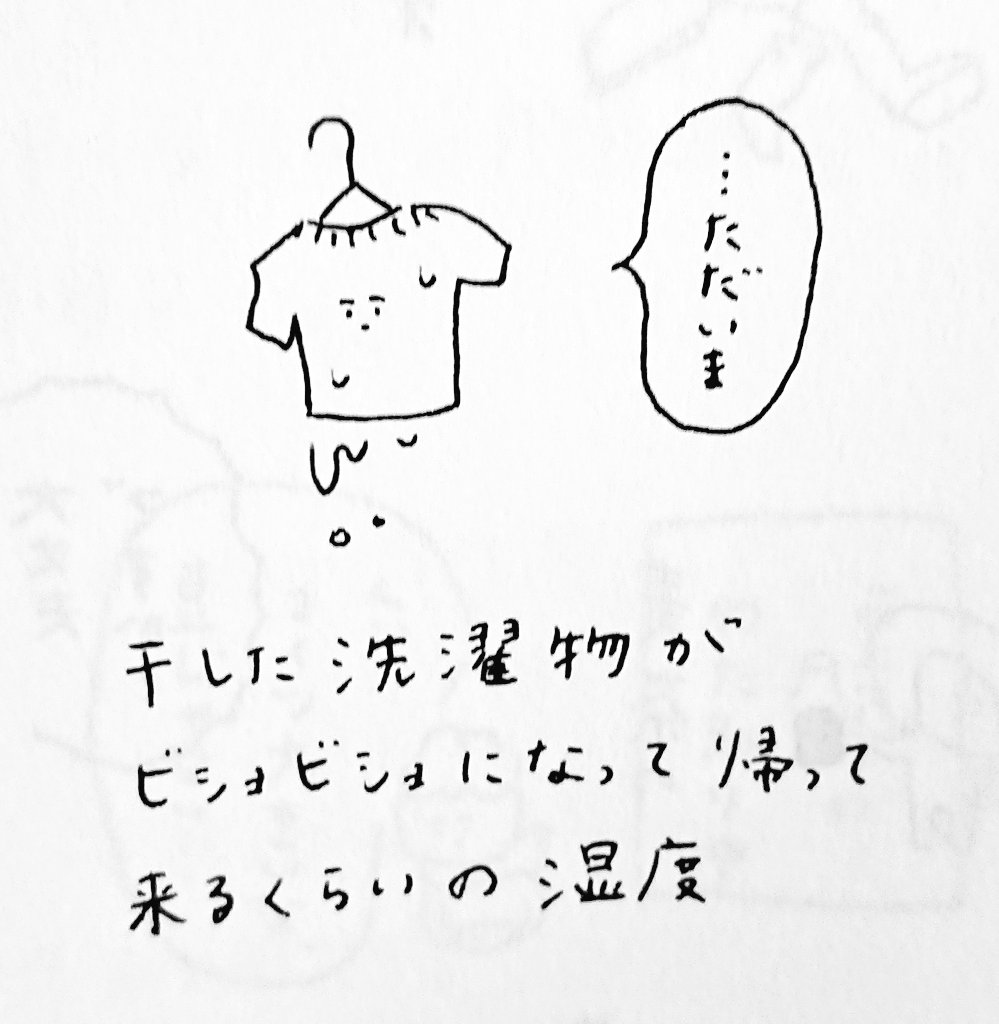 …ただいま
干した洗濯物が
ビショビショになって帰って
来るくらいの湿度